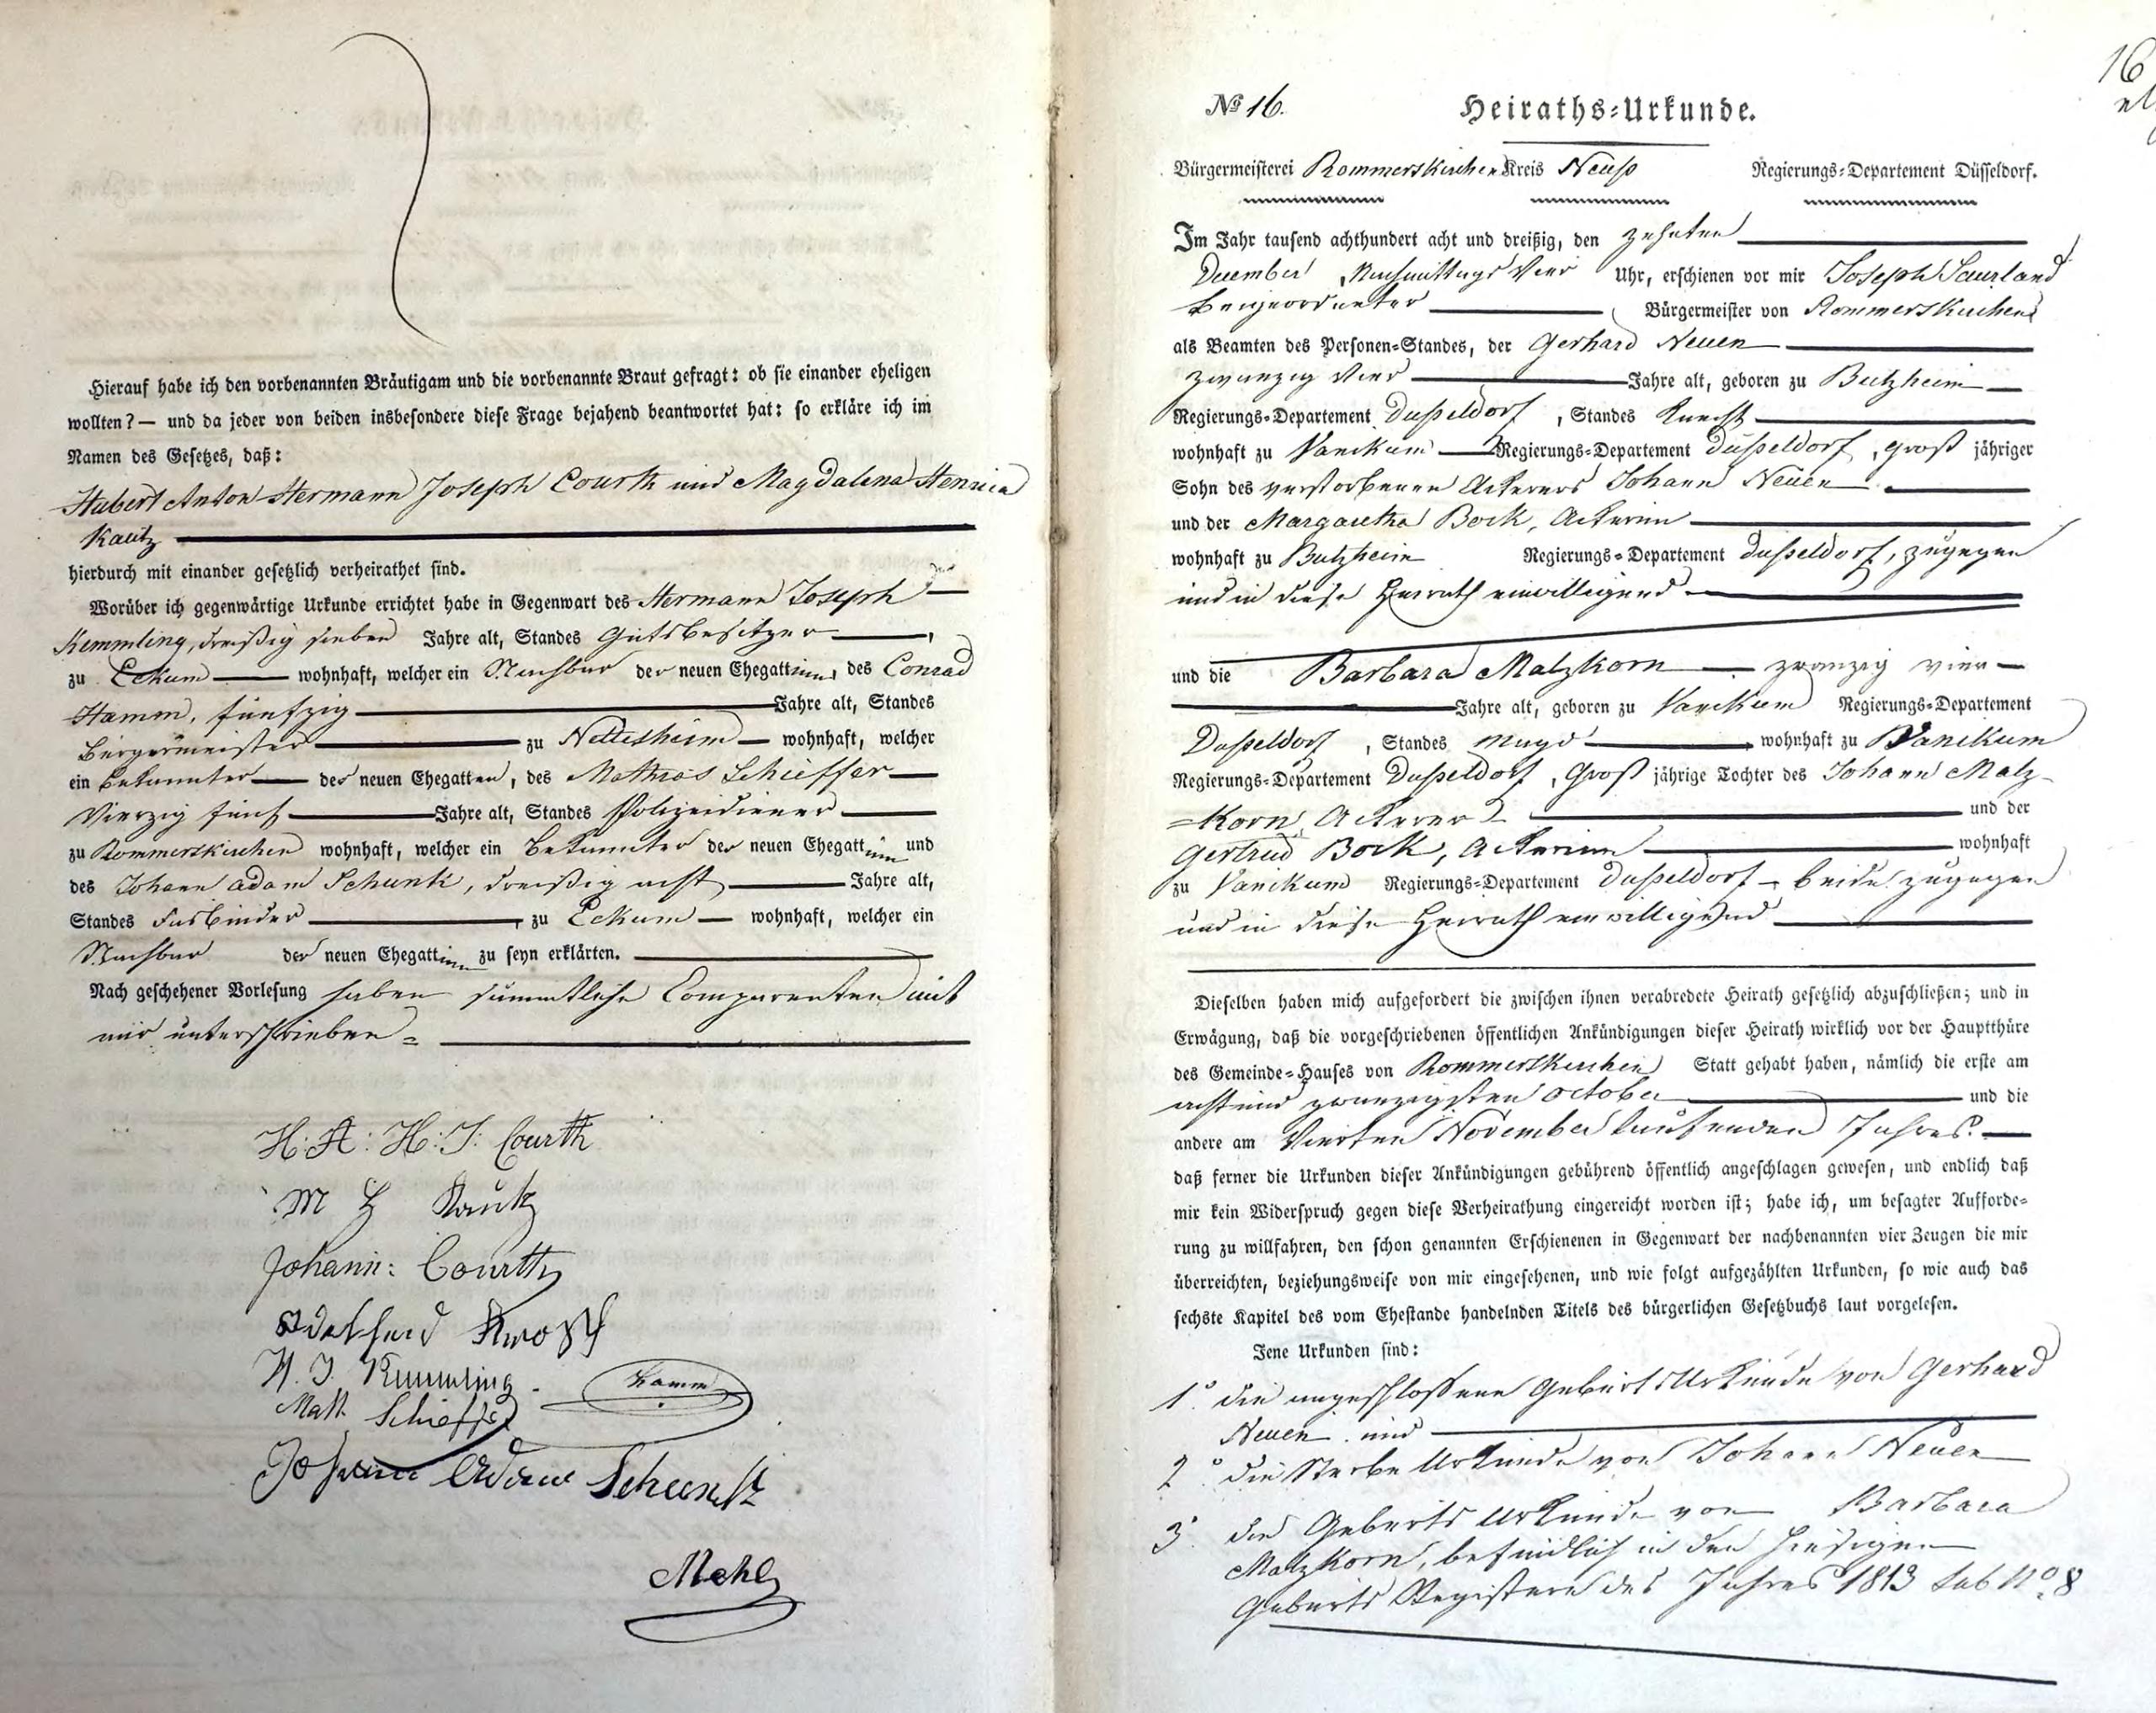 Hierauf habe ich den vorbenannten Bräutigam und die vorbenannte Braut gefragt: ob sie einander eheligen
wollten? — und da jeder von beiden insbesondere diese Frage bejahend beantwortet hat: so erkläre ich im
Namen des Gesetzes, daß:
Hubert Anton Hermann Joseph Courth und Magdalena Henrica
Kautz
hierdurch mit einander gesetzlich verheirathet sind.
Worüber ich gegenwärtige Urkunde errichtet habe in Gegenwart des Hermann Joseph
Kemmling, dreißig sieben Jahre alt, Standes Gutsbesitzer,
zu Eckum wohnhaft, welcher ein Nachbar der neuen Ehegattinn, des Conrad
Hamm, fünfzig Jahre alt, Standes
Bürgermeister zu Nettesheim wohnhaft, welcher
ein Bekannter der neuen Ehegatten, des Mathias Schieffer
Vierzig fünf Jahre alt, Standes Polizeidiener
zu Rommerskirchen wohnhaft, welcher ein Bekannter der neuen Ehegattinn und
des Johann Adam Schunk, dreißig acht Jahre alt,
Standes Fasbinder, zu Eckum wohnhaft, welcher ein
Nachbar der neuen Ehegattinn zu seyn erklärten.
Nach geschehener Vorlesung haben sämmtliche Comparenten mit
mir unterschrieben =
H: A: H: J: Courth
M H Kautz
Johann: Courth
H. J. Kemmling
Hamm
Math Schieffer
Johann Adam Schunk
16
№ 16.
Heiraths-Urkunde.
Bürgermeisterei Rommerskirchen Kreis Neuß Regierungs-Departement Düsseldorf.
Im Jahr tausend achthundert acht und dreißig, den zehnten
December Nachmittags Vier Uhr, erschienen vor mir Joseph Saurland
Beigeordneter Bürgermeister von Rommerskirchen
als Beamten des Personen-Standes, der Gerhard Neuen
zwanzig Vier Jahre alt, geboren zu Butzheim
Regierungs-Departement Dußeldorf, Standes Knecht
wohnhaft zu Vanikum Regierungs-Departement Düßeldorf, groß jähriger
Sohn des verstorbenen Ackerers Johann Neuen
und der Margaretha Bock, Ackerin
wohnhaft zu Butzheim Regierungs-Departement Dußeldorf, zugegen
und in diese Heirath einwilligend
und die Barbara Malzkorn zwanzig vier
Jahre alt, geboren zu Vanikum Regierungs-Departement
Dußeldorf, Standes Magd wohnhaft zu Vanikum
Regierungs-Departement Dußeldorf, Groß jährige Tochter des Johann Malz-
=Korn Ackerer und der
Gertrud Bock, Ackerin wohnhaft
zu Vanikum Regierungs-Departement Dußeldorf beide zugegen
und in diese Heirath einwilligend
Dieselben haben mich aufgefordert die zwischen ihnen verabredete Heirath gesetzlich abzuschließen; und in
Erwägung, daß die vorgeschriebenen öffentlichen Ankündigungen dieser Heirath wirklich vor der Hauptthüre
des Gemeinde-Hauses von Rommerskirchen Statt gehabt haben, nämlich die erste am
acht und zwanzigsten October und die
andere am Vierten November laufenden Jahres.
daß ferner die Urkunden dieser Ankündigungen gebührend öffentlich angeschlagen gewesen, und endlich daß
mir kein Widerspruch gegen diese Verheirathung eingereicht worden ist; habe ich, um besagter Aufforde-
rung zu willfahren, den schon genannten Erschienenen in Gegenwart der nachbenannten vier Zeugen die mir
überreichten, beziehungsweise von mir eingesehenen, und wie folgt aufgezählten Urkunden, so wie auch das
sechste Kapitel des vom Ehestande handelnden Titels des bürgerlichen Gesetzbuchs laut vorgelesen.
Jene Urkunden sind:
1° die angeschlossene Geburts Urkunde von Gerhard
Neuen und
2° die Sterbe Urkunde von Johann Neuen
3. die Geburts Urkunde von Barbara
Malzkorn, befindlich in den hiesigen
Geburts Registern des Jahres 1813 sub No 8